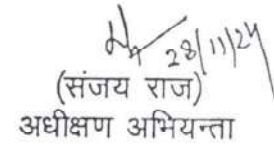 28/11/24
(संजय राज)
अधीक्षण अभियन्ता